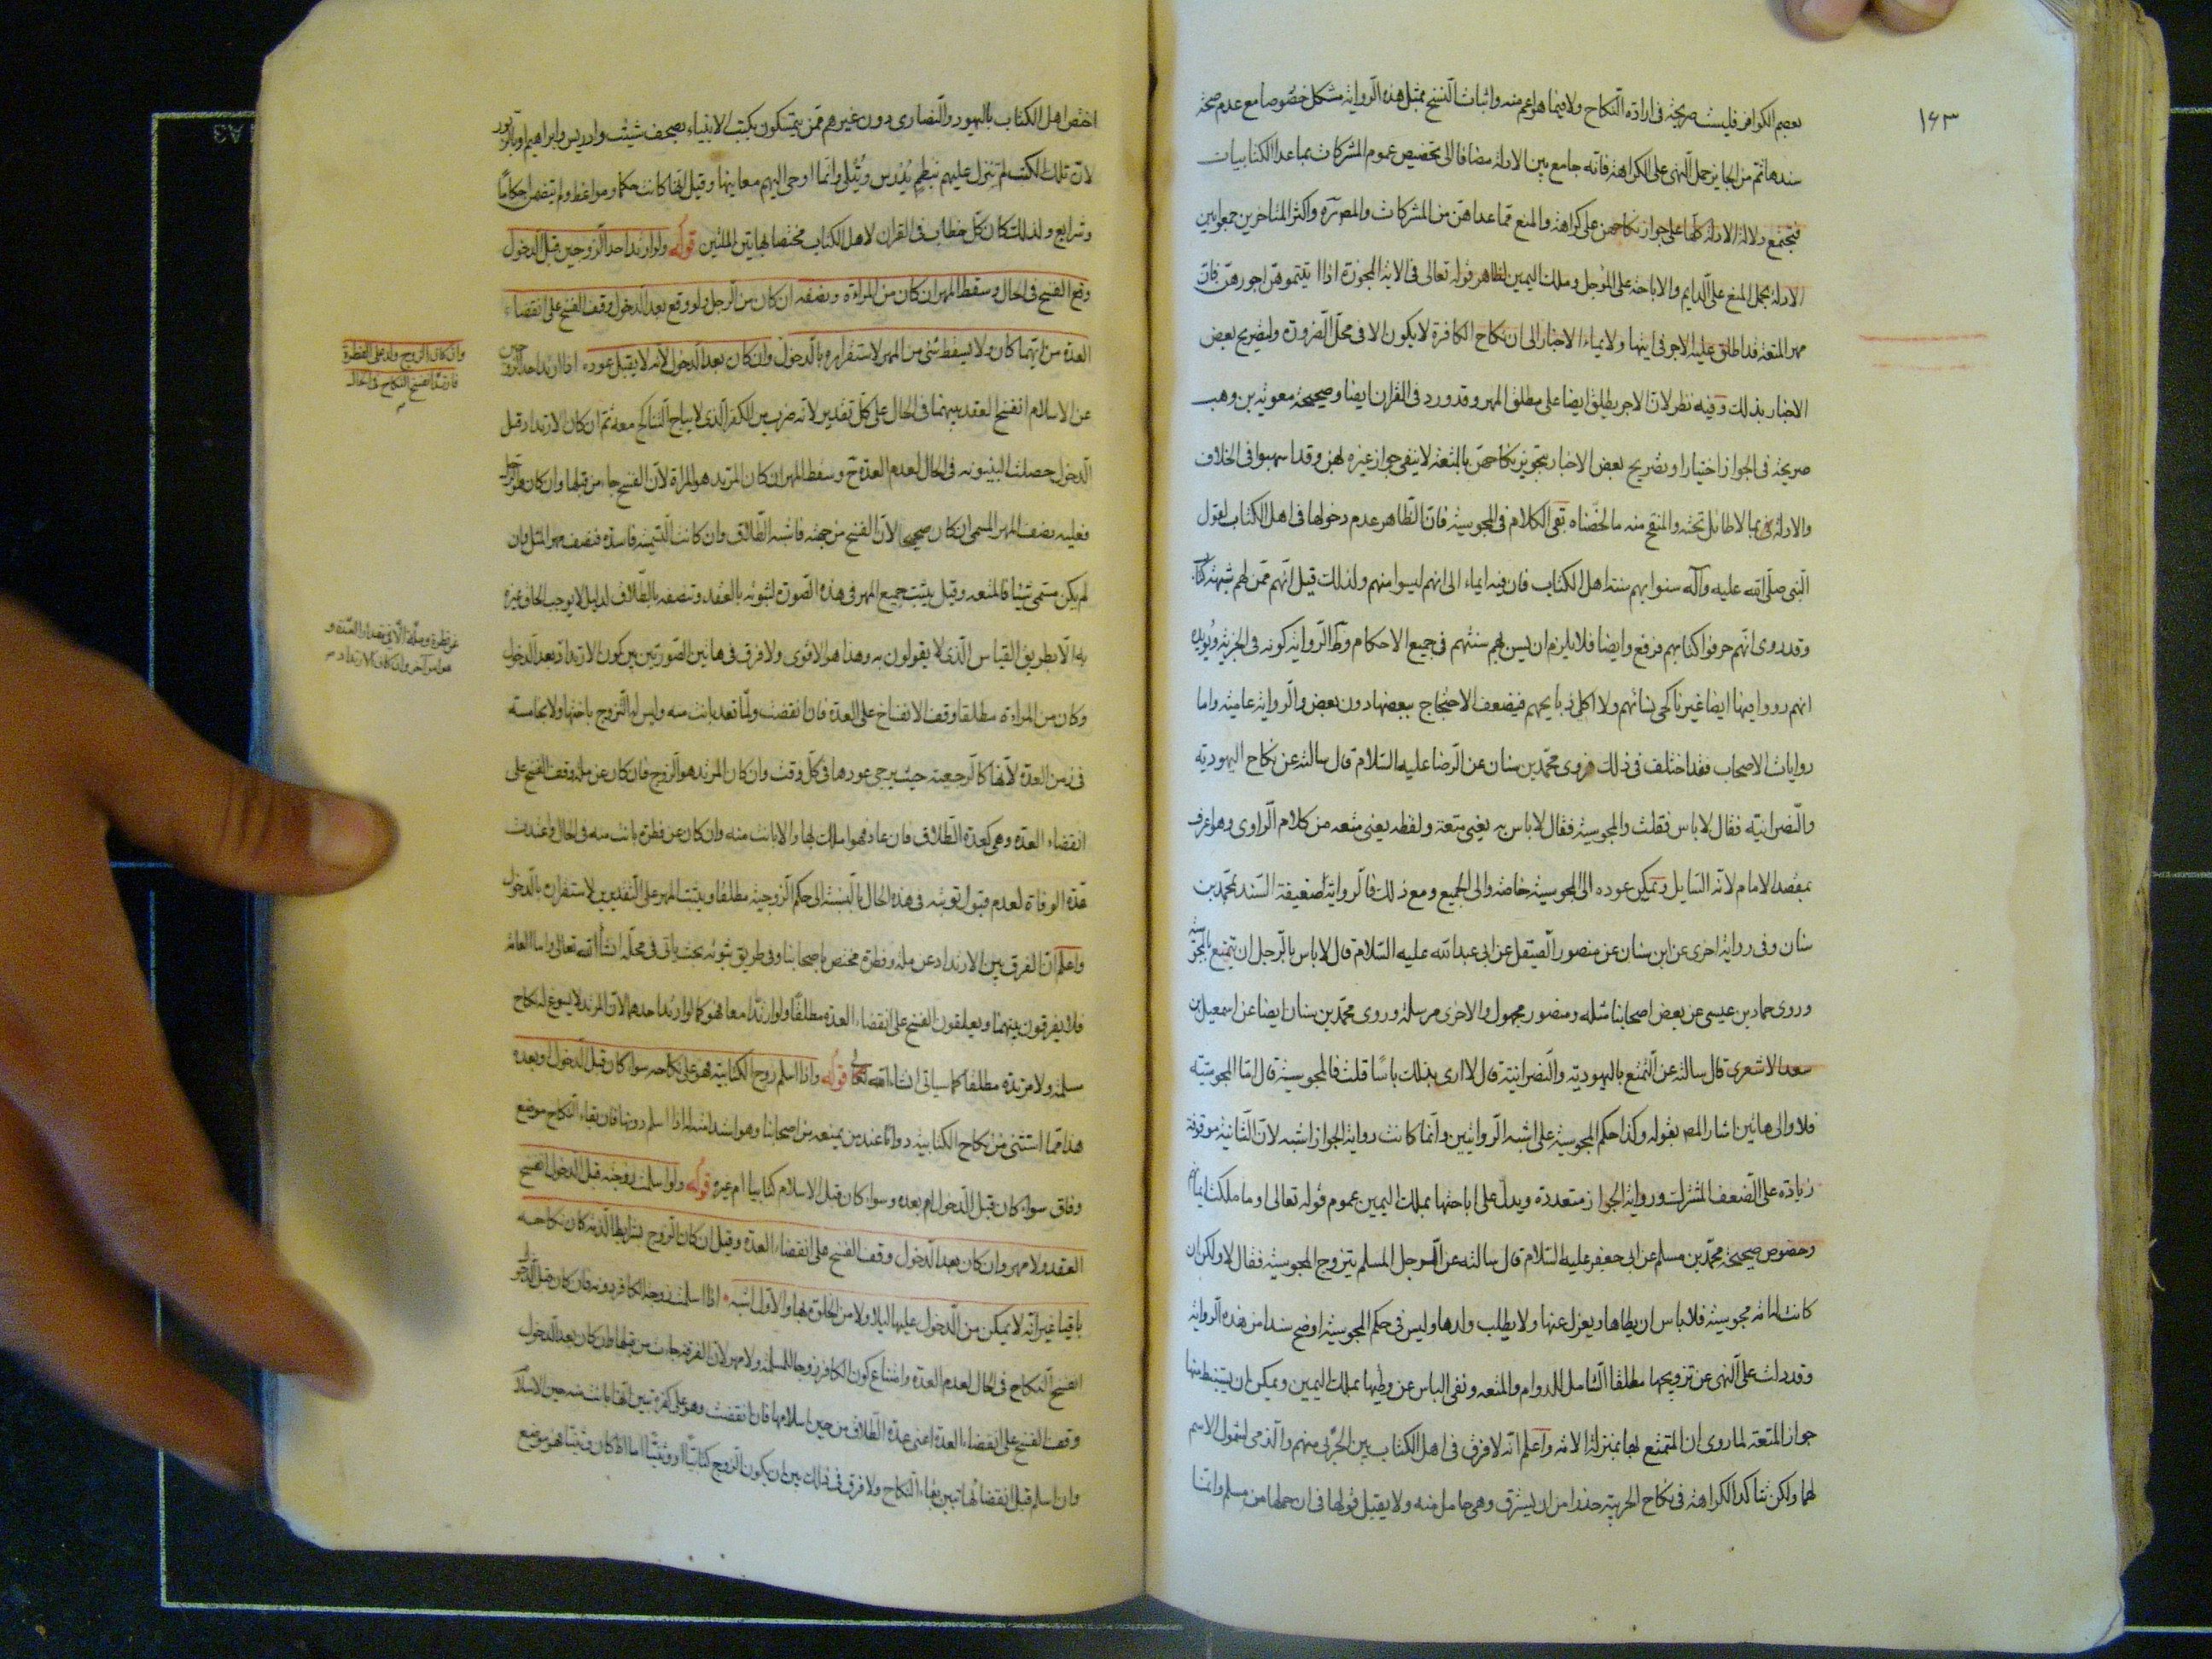 ١٤٣
بعصم الكوافر فليست صريحة في ارادة النكاح ولا فيما هو اعم منه واثبات النسخ بمثل هذه الرواية مشكل خصوصا مع عدم صحة
سندها ثم من الجايز حمل النهى على الكراهة فانه جامع بين الادلة مضافا الى تخصيص عموم المشركات بما عدا الكتابيات
فتجتمع دلالة الادلة كلها على جواز نكاحهن على كراهة والمنع مما عداهن من المشركات والمصره واكثر المتاخرين جمعوا بين
الادلة بحمل المنع على الدايم والاباحة على المؤجل وملك اليمين لظاهر قوله تعالى في الاية المجوزة اذا اتيتموهن اجورهن فان
مهر المتعة قد اطلق عليه الاجر في ايتها ولايماء الاخبار الى ان نكاح الكافرة لا يكون الا في محل الضرورة ولتصريح بعض
الاخبار بذلك وفيه نظر لان الاجر يطلق ايضا على مطلق المهر وقد ورد في القران ايضا وصحيحة معوية بن وهب
صريحة في الجواز اختيارا وتصريح بعض الاخبار بتجويز نكاحهن بالمتعة لا ينفى جواز غيره لهن وقد اسهبوا في الخلاف
والادلة في بما لا طائل تحته والمنقح منه ما لخصناه بقى الكلام في المجوسية فان الظاهر عدم دخولها في اهل الكتاب لقول
النبى صلى الله عليه وآله سنوا بهم سنة اهل الكتاب فان فيه ايماء الى انهم ليسوا منهم ولذلك قيل انهم ممن لهم شبهة كتاب
وقد روى انهم حرفوا كتابهم فرفع وايضا فلا يلزم ان يسن بهم سنتهم في جميع الاحكام وظ الرواية كونه في الجزية ويؤيده
انهم رووا فيها ايضا غير ناكحى نسائهم ولا اكلى ذبايحهم فيضعف الاحتجاج ببعضها دون بعض والرواية عامية واما
روايات الاصحاب فقد اختلف في ذلك فروى محمد بن سنان عن الرضا عليه السلام قال سالته عن نكاح اليهودية
والنصرانية فقال لا باس فقلت والمجوسية فقال لا باس به يعنى متعة ولفظه يعنى متعه من كلام الراوى وهو اعرف
بمقصد الامام لانه السايل ويمكن عوده الى المجوسية خاصة والى الجميع ومع ذلك فالرواية ضعيفة السند بمحمد بن
سنان وفى رواية اخرى عن ابن سنان عن منصور الصيقل عن ابى عبد الله عليه السلام قال لا باس بالرجل ان يتمتع بالمجوسية
وروى حماد بن عيسى عن بعض اصحابنا مثله ومنصور مجهول والاخرى مرسلة وروى محمد بن سنان ايضا عن اسمعيل بن
سعد الاشعرى قال سالته عن التمتع باليهودية والنصرانية قال لا ارى بذلك باسا قلت فالمجوسية قال اما المجوسية
فلا والى هاتين اشار المصر بقوله وكذا حكم المجوسية على اشبه الروايتين وانما كانت رواية الجواز اشبه لان الثانية موقوفة
زيادة على الضعف المشترك ورواية الجواز متعددة ويدل على اباحتها بملك اليمين عموم قوله تعالى او ما ملكت ايمانهم
وخصوص صحيحة محمد بن مسلم عن ابى جعفر عليه السلام قال سالته عن الرجل المسلم يتزوج المجوسية فقال لا ولكن ان
كانت له امة مجوسية فلا باس ان يطاها ويعزل عنها ولا يطلب ولدها وليس في حكم المجوسية اوضح سندا من هذه الرواية
وقد دلت على النهى عن تزويجها مطلقا الشامل للدوام والمتعه ونفى الباس عن وطيها بملك اليمين ويمكن ان يستنبط منها
جواز المتعة لما روى ان المتمتع بها بمنزلة الامة واعلم انه لا فرق في اهل الكتاب بين الحربى منهم والذمى لشمول الاسم
لهما ولكن تتاكد الكراهة في نكاح الحربية حذرا من ان يسترق وهى حامل منه ولا يقبل قولها في ان حملها من مسلم وانما
اختص اهل الكتاب باليهود والنصارى دون غيرهم ممن يتمسكون بكتب الانبياء بصحف شيث وادريس وابراهيم وبالزبور
لان تلك الكتب لم تنزل عليهم بنظم يدرس ويتلى وانما اوحى اليهم معانيها وقيل انها كانت حكما ومواعظ ولم تتضمن احكاما
وشرايع ولذلك كان كل خطاب في القران لاهل الكتاب مختصا بهاتين الملتين قوله ولو ارتد احد الزوجين قبل الدخول
وقع الفسخ في الحال وسقط المهر ان كان من المراة ونصفه ان كان من الرجل ولو وقع بعد الدخول وقف الفسخ على انقضاء
العدة من ايهما كان ولا يسقط شئ من المهر لاستقراره بالدخول وان كان بعد الدخول لانه لا يقبل عوده اذا ارتد احد الزوجين
وان كان الزوج ولد على الفطرة
فارتد انفسخ النكاح في الحال
عن الاسلام انفسخ العقد بينهما في الحال على كل تقدير لانه ضرب من الكفر الذى لا يباح التناكح معه ثم ان كان الارتداد قبل
الدخول حصلت البينونه في الحال لعدم العدة ح وسقط المهر ان كان المرتد هو المراة لان الفسخ جاء من قبلها وان كان هو الرجل
فعليه نصف المهر المسمى ان كان صحيحا لان الفسخ من جهته فاشبه الطلاق وان كانت التسمية فاسدة فنصف مهر المثل وان
لم يكن مسمى شيئا فالمتعه وقيل يثبت جميع المهر في هذه الصورة لثبوته بالعقد وتنصفه بالطلاق لدليل لا يوجب الحاق غيره
به الا بطريق القياس الذى لا يقولون به وهذا هو الاقوى ولا فرق في هاتين الصورتين بين كون الارتداد بعد الدخول
عن فطرة وملة الا في مقدار العدة و
هو امر آخر وان كان الارتداد
وكان من المراة مطلقا وقف الانفساخ على العدة فان انقضت ولما تعد بانت منه وليس له التزوج باختها ولا بخامسة
في زمن العدة لانها كالرجعية حيث يرجى عودها في كل وقت وان كان المرتد هو الزوج فان كان عن ملة وقف الفسخ على
انقضاء العدة وهى كعدة الطلاق فان عاد فهو املك بها والا بانت منه وان كان عن فطرة بانت منه في الحال واعتدت
عدة الوفاة لعدم قبول توبته في هذه الحال بالنسبة الى حكم الزوجية مطلقا ويثبت المهر على التقديرين لاستقراره بالدخول
واعلم ان الفرق بين الارتداد عن ملة وفطرة مختص باصحابنا وفى طريق ثبوته بحث ياتى في محله انشا الله تعالى واما العامة
فلا يفرقون بينهما ويعلقون الفسخ على انقضاء العدة مطلقا ولو ارتدا معا فهو كما لو ارتد احدهما لان المرتد لا يسوغ له نكاح
مسلمة ولا مرتدة مطلقا كما سياتى انشاء الله تعالى قوله واذا اسلم زوج الكتابية فهو على نكاحه سواء كان قبل الدخول او بعده
هذا مما استثنى من نكاح الكتابية دواما عند من يمنعه من اصحابنا وهو استدامته اذا اسلم دونها فان بقاء النكاح موضع
وفاق سواء كان قبل الدخول ام بعده وسواء كان قبل الاسلام كتابيا ام غيره قوله ولو اسلمت زوجته قبل الدخول انفسخ
العقد ولا مهر وان كان بعد الدخول وقف الفسخ على انقضاء العدة وقيل ان كان الزوج بشرايط الذمة كان نكاحه
باقيا غير انه لا يمكن من الدخول عليها ليلا ولا من الخلوة بها والاول اشبه اذا اسلمت زوجة الكافر دونه فان كان قبل الدخول
انفسخ النكاح في الحال لعدم العدة وامتناع كون الكافر زوجا للمسلمة ولا مهر لان الفرقة جاءت من قبلها وان كان بعد الدخول
وقف الفسخ على انقضاء العدة اعنى عدة الطلاق من حين اسلامها فان انقضت وهو على كفره تبين انها بانت منه حين الاسلام
وان اسلم قبل انقضائها تبين بقاء النكاح ولا فرق في ذلك بين ان يكون الزوج كتابيا او وثنيا اما اذا كان وثنيا فهو موضع